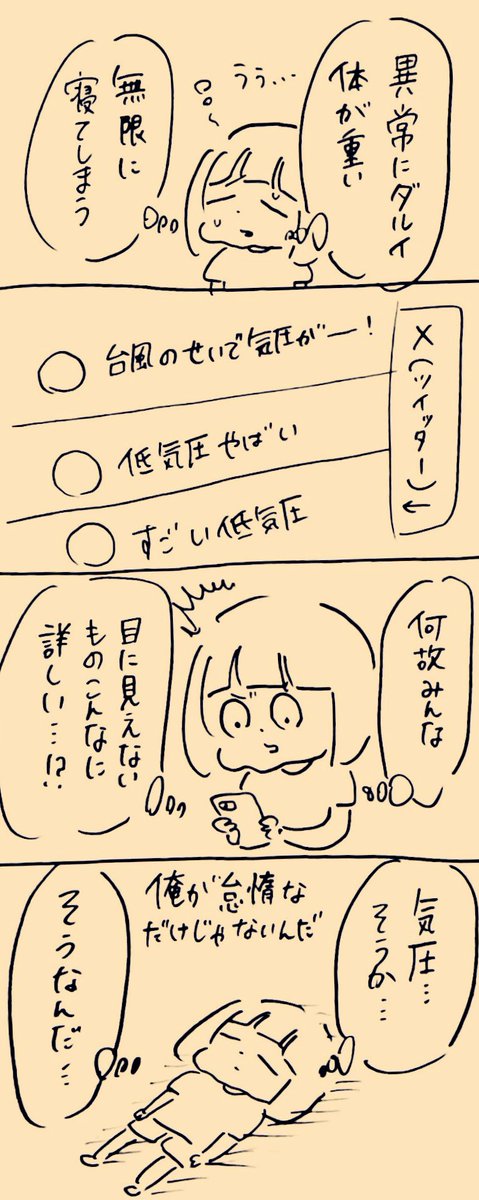 異常にダルイ
体が重い
うぅ…
無限に
寝てしまう
X(ツイッター)←
台風のせいで気圧がー!
低気圧やばい
すごい低気圧
何故みんな
目に見えない
ものこんなに
詳しい…!?
気圧…
そうか…
俺が怠惰な
だけじゃないんだ
そうなんだ…